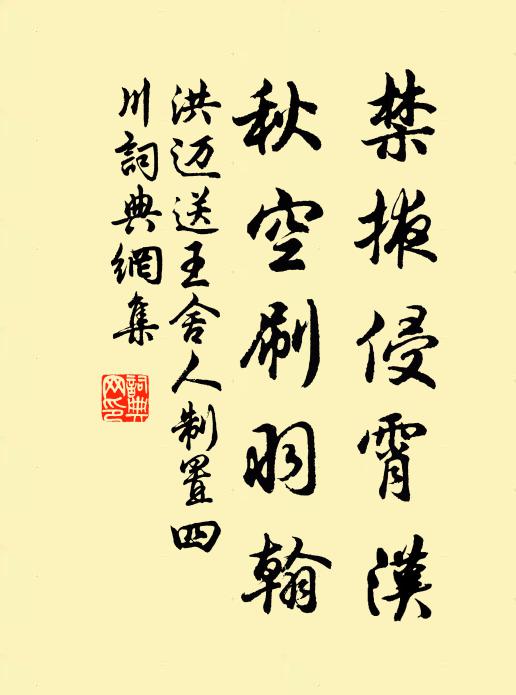 禁掖侵霄漢
秋空刷羽翰
洪迈送王舍人制置四
川詞典網集
詞典
网印